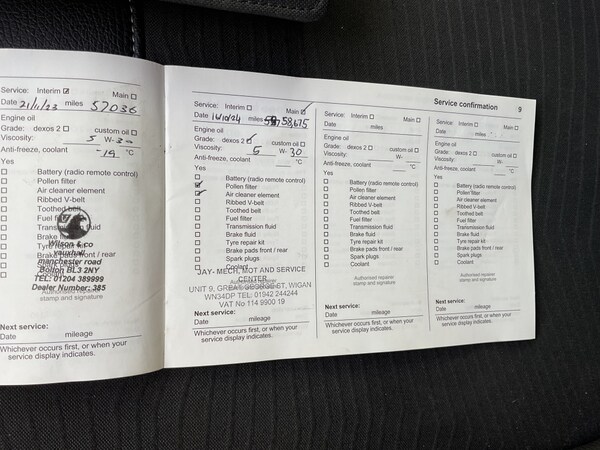 Service: Interim ☑
Main ☐
Date 21/11/23 miles 57036
Engine oil
Grade: dexos 2 ☐ custom oil ☐
Viscosity: 5 W- 30
Anti-freeze, coolant -19 °C
Yes
☐ Battery (radio remote control)
☐ Pollen filter
☐ Air cleaner element
☐ Ribbed V-belt
☐ Toothed belt
☐ Fuel filter
☐ Transmission fluid
☐ Brake fluid
☐ Tyre repair kit
☐ Brake pads front / rear
☐ Spark plugs
☐ Coolant
Wilson & co
vauxhall
manchester road
Bolton BL3 2NY
TEL: 01204 389999
Dealer Number: 385
stamp and signature
Next service:
Date mileage
Whichever occurs first, or when your
service display indicates.
Service confirmation 9
Service: Interim ☐ Main ☑
Date 16/10/24 miles 58,675
Engine oil
Grade: dexos 2 ☑ custom oil ☐
Viscosity: 5 W- 30
Anti-freeze, coolant °C
Yes
☐ Battery (radio remote control)
☑ Pollen filter
☑ Air cleaner element
☐ Ribbed V-belt
☐ Toothed belt
☐ Fuel filter
☐ Transmission fluid
☐ Brake fluid
☐ Tyre repair kit
☐ Brake pads front / rear
☐ Spark plugs
☐ Coolant
JAY- MECH, MOT AND SERVICE
CENTER
Authorised repairer
UNIT 9, GREAT GEORGE ST, WIGAN
stamp and signature
WN34DP TEL: 01942 244244
VAT No 114 9900 19
Next service:
Date mileage
Whichever occurs first, or when your
service display indicates.
Service: Interim ☐ Main ☐
Date miles
Engine oil
Grade: dexos 2 ☐ custom oil ☐
Viscosity: W-
Anti-freeze, coolant °C
Yes
☐ Battery (radio remote control)
☐ Pollen filter
☐ Air cleaner element
☐ Ribbed V-belt
☐ Toothed belt
☐ Fuel filter
☐ Transmission fluid
☐ Brake fluid
☐ Tyre repair kit
☐ Brake pads front / rear
☐ Spark plugs
☐ Coolant
Authorised repairer
stamp and signature
Next service:
Date mileage
Whichever occurs first, or when your
service display indicates.
Service: Interim ☐ Main ☐
Date miles
Engine oil
Grade: dexos 2 ☐ custom oil ☐
Viscosity: W-
Anti-freeze, coolant °C
Yes
☐ Battery (radio remote control)
☐ Pollen filter
☐ Air cleaner element
☐ Ribbed V-belt
☐ Toothed belt
☐ Fuel filter
☐ Transmission fluid
☐ Brake fluid
☐ Tyre repair kit
☐ Brake pads front / rear
☐ Spark plugs
☐ Coolant
Authorised repairer
stamp and signature
Next service:
Date mileage
Whichever occurs first, or when your
service display indicates.